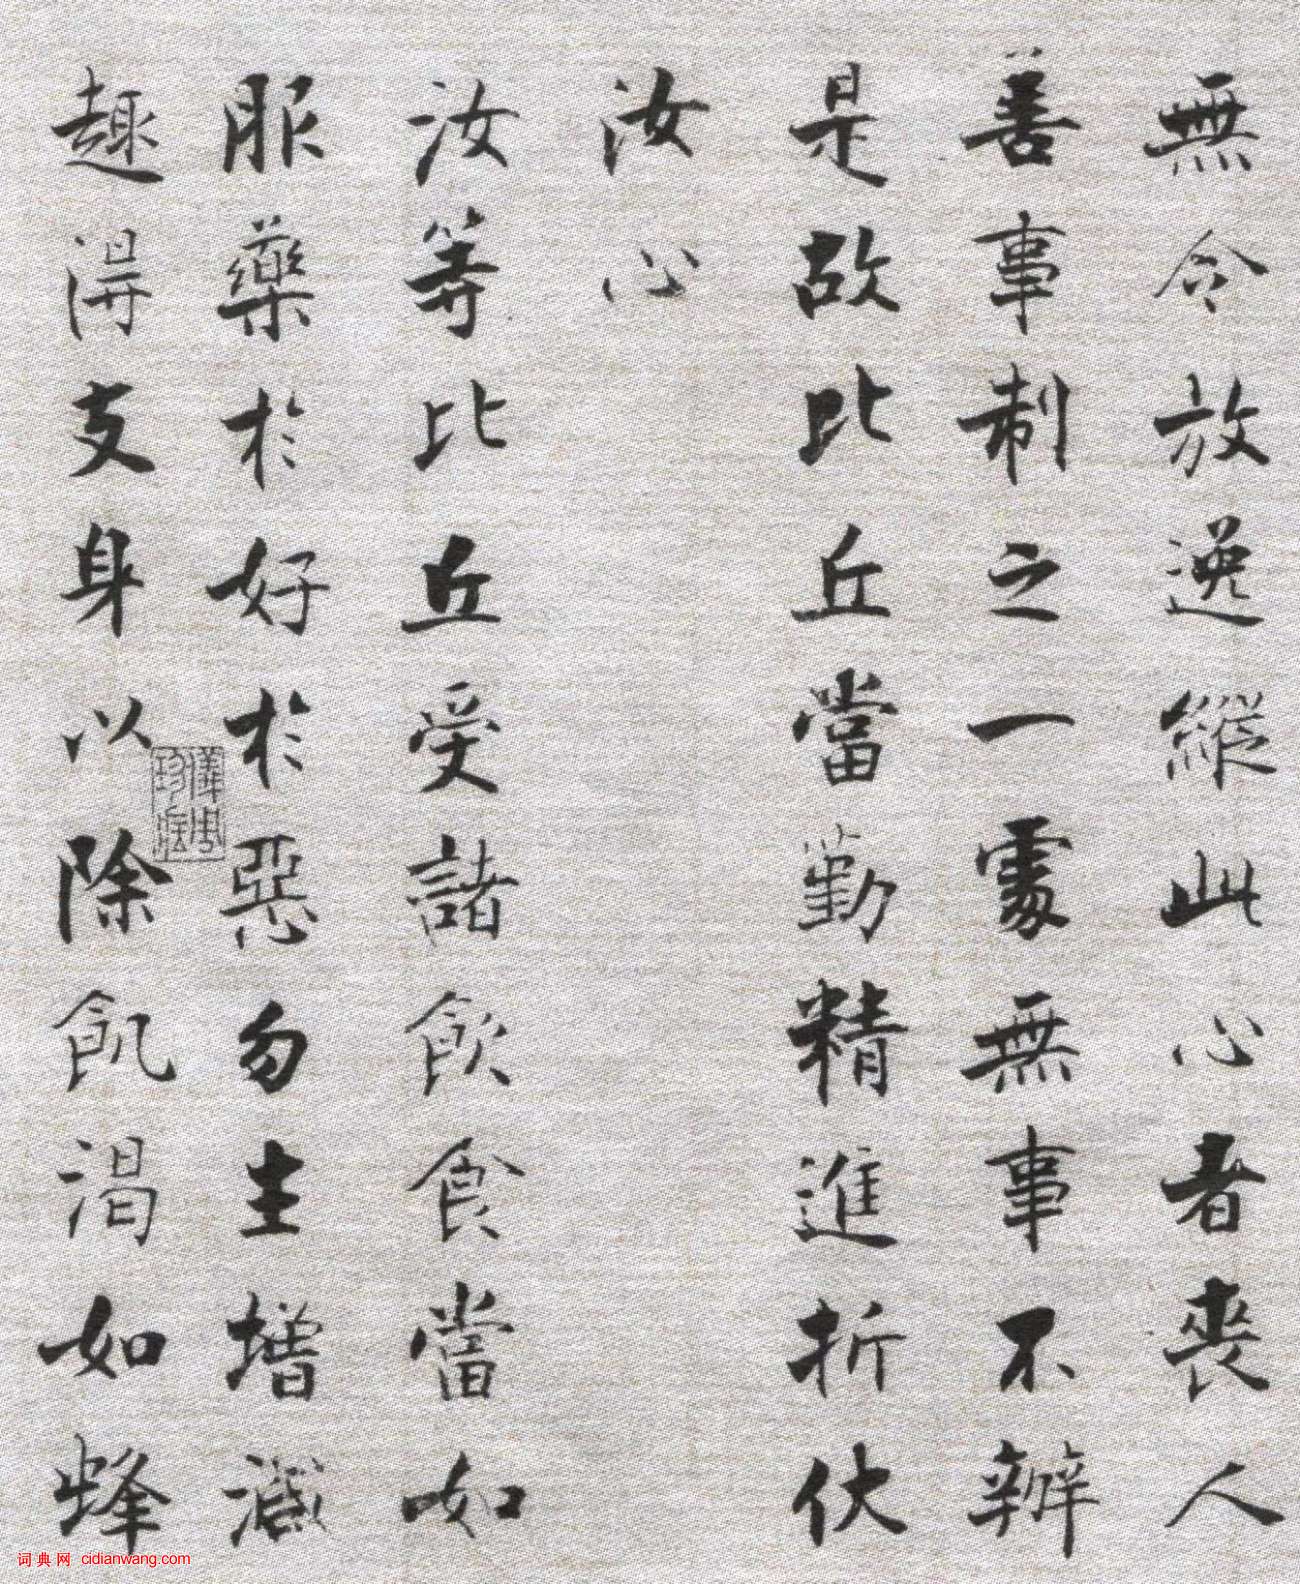 無令放逸縱此心者喪人
善事制之一處無事不辦
是故比丘當勤精進折伏
汝心
汝等比丘受諸飲食當如
服藥於好於惡勿生增減
趣得支身以除飢渴如蜂
儀周珍藏
词典网 cidianwang.com